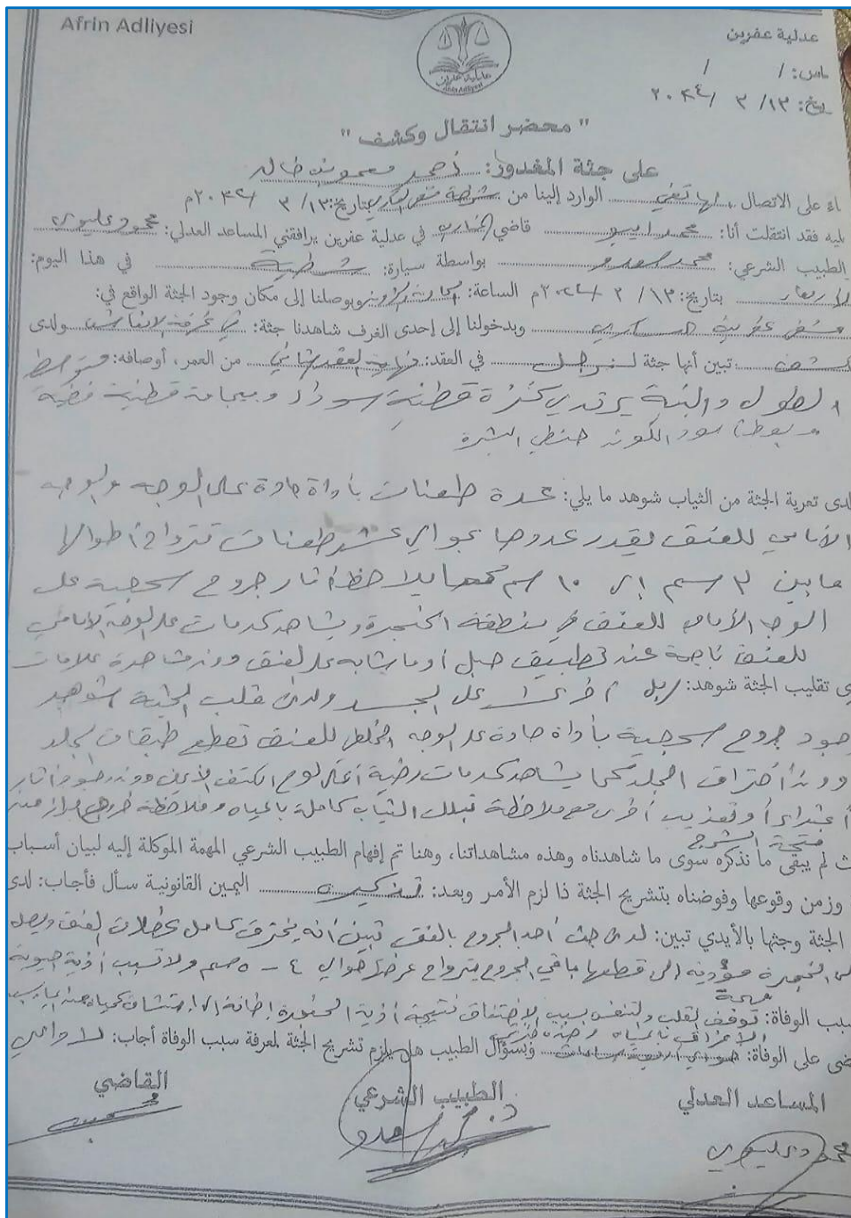 Afrin Adliyesi
عدلية عفرين
عدلية عفرين
Afrin Adliyesi
اس: / /
يخ: ١٣/ ٣ /٢٠٢٤
" محضر انتقال وكشف "
على جثة المغدور: أحمد معمو بن خالد
اءً على الاتصال الهاتفي الوارد إلينا من شرطة بتاريخ: ١٣/ ٣ /٢٠٢٤م
ليه فقد انتقلت أنا: محمد قاضي في عدلية عفرين يرافقني المساعد العدلي: محمود عليوي
الطبيب الشرعي: محمد سعدو بواسطة سيارة: شرطية في هذا اليوم:
الأربعاء بتاريخ: ١٣/ ٣ /٢٠٢٤م الساعة: وبوصلنا إلى مكان وجود الجثة الواقع في:
عفرين العسكري وبدخولنا إلى إحدى الغرف شاهدنا جثة: في غرفة الإنعاش ولدى
كشف تبين أنها جثة لـ رجل في العقد: الثاني من العمر، أوصافه: متوسط
الطول والبنية يرتدي كنزة قطنية سوداء وبيجامة قطنية فضية
أسود اللون حنطي البشرة
لدى تعرية الجثة من الثياب شوهد ما يلي: عدة طعنات بأداة حادة على الوجه والوجه
الأمامي للعنق يقدر عددها بحوالي عشر طعنات تتراوح أطوالها
ما بين ٣ سم إلى ١٠ سم كما يلاحظ آثار جروح سحجية على
الوجه الأمامي للعنق في منطقة الحنجرة ويشاهد كدمات على الوجه الأمامي
للعنق ناجمة عند تطبيق حبل أو ما شابه على العنق ودون مشاهدة علامات
ى تقليب الجثة شوهد: أخرى على الجسد ولدى قلب الجثة شوهد
وجود جروح سحجية بأداة حادة على الوجه الخلفي للعنق تقطع طبقات الجلد
دون اختراق الجلد كما يشاهد كدمات رضية أعلى لوح الكتف الأيمن ودون وجود آثار
اعتداء أو تعذيب أخرى مع ملاحظة تبلل الثياب كاملة بالمياه وملاحظة خروج براز من
فتحة الشرج
ث لم يبقى ما نذكره سوى ما شاهدناه وهذه مشاهداتنا، وهنا تم إفهام الطبيب الشرعي المهمة الموكلة إليه لبيان أسباب
وزمن وقوعها وفوضناه بتشريح الجثة ذا لزم الأمر وبعد: اليمين القانونية سأل فأجاب: لدى
الجثة وجثها بالأيدي تبين: لدى جث أحد الجروح بالعنق تبين أنه يخترق كامل عضلات العنق ويصل
إلى الحنجرة مؤدية إلى قطعها باقي الجروح يتراوح عرضها حوالي ٤ - ٥ سم ولا تسبب أذية حيوية
مهمة
سبب الوفاة: توقف القلب والتنفس بسبب الاختناق نتيجة أذية الحنجرة إضافة إلى استنشاق كمية من
ضى على الوفاة: حوالي ساعات وبسؤال الطبيب هل يلزم تشريح الجثة لمعرفة سبب الوفاة أجاب: لا داعي
القاضي
الطبيب الشرعي
المساعد العدلي
د. محمد سعدو
محمود عليوي